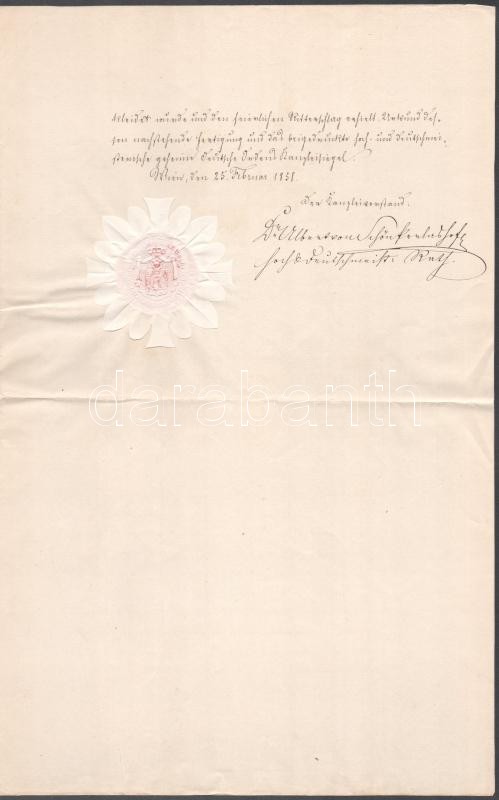 kleidet wurde und den feierlichen Ritterschlag erhielt. Urkund des-
sen nachstehende Fertigung und das beigedruckte hoch- und deutschmei-
sterische geheime Deutsche Ordens Kanzleisiegel.
Wien, den 25. Februar 1858.
Der Kanzleivorstand:
Dr Albert von
hoch & Deutschmeist. Rath.
darabanth